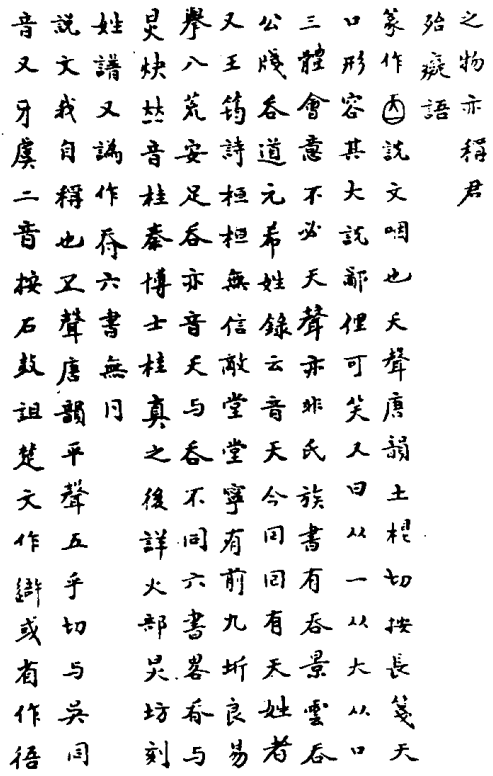 之物亦稱君
殆癡語
篆作説文咽也天聲唐韻土根切按長箋天
口形容其大説鄙俚可笑又曰从一从大从口
三體會意不必天聲亦非氏族書有吞景雲吞
公牋吞道元希姓錄云音天今同囘有天姓者
又王筠詩桓桓無信敵堂堂寧有前九圻良易
舉八荒安足吞亦音天与吞不同六書畧与
炅炔音桂秦博士桂真之後詳火部炅坊刻
姓譜又譌作六書無
説文我自稱也五聲唐韻平聲五乎切与吴同
音又牙虞二音按石鼓詛楚文作或有作